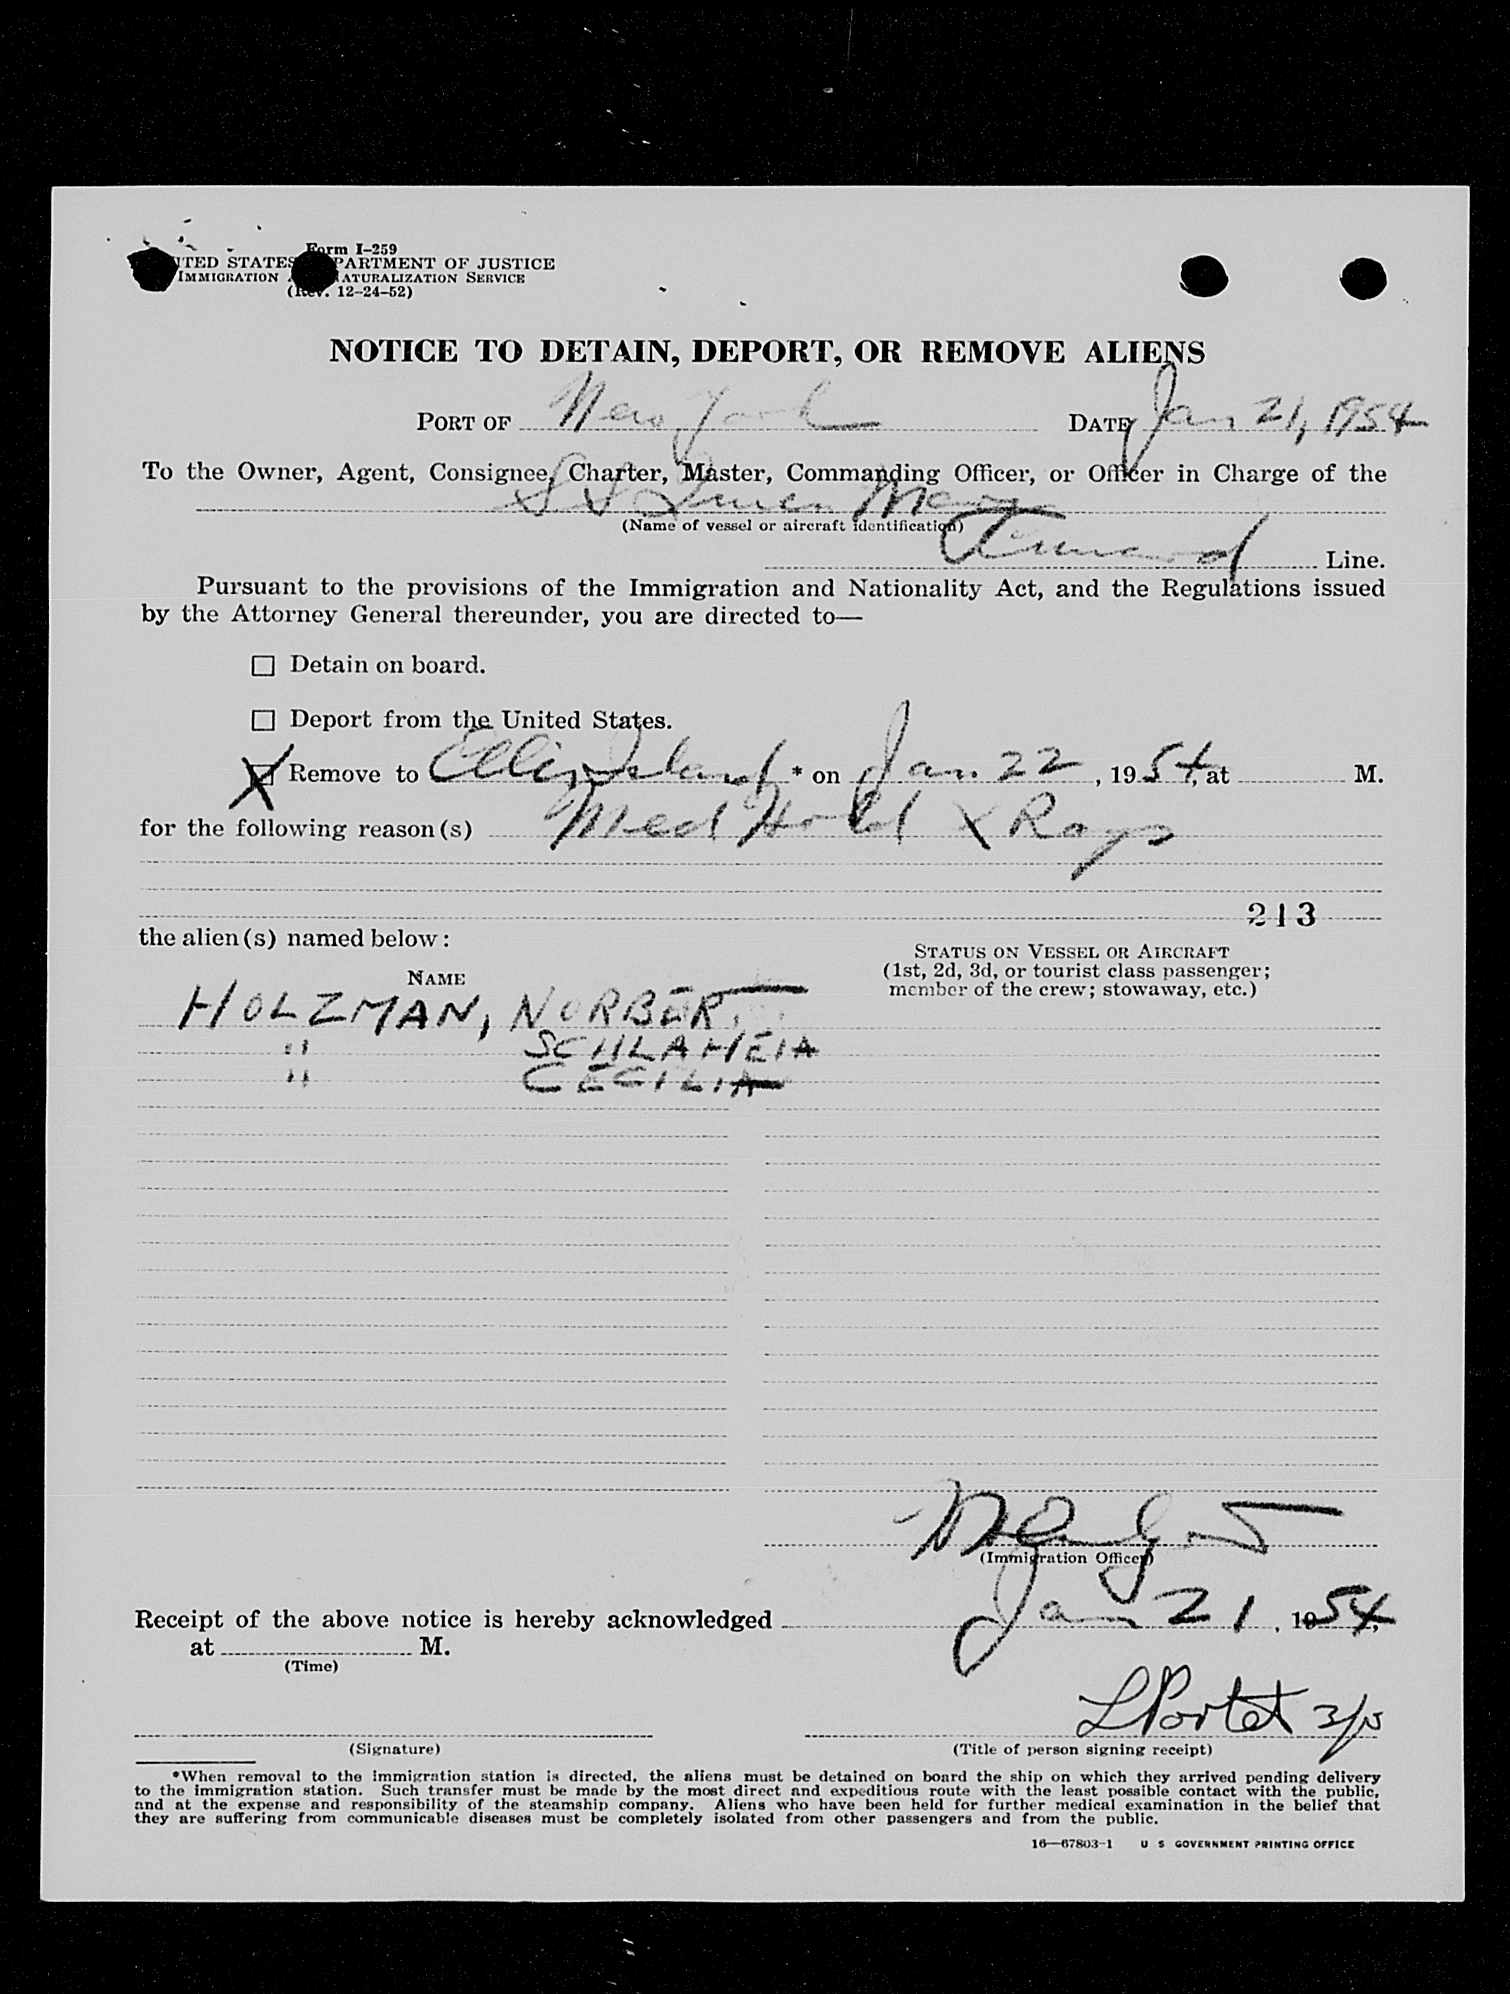 Form I-259
UNITED STATES DEPARTMENT OF JUSTICE
IMMIGRATION AND NATURALIZATION SERVICE
(Rev. 12-24-52)
NOTICE TO DETAIN, DEPORT, OR REMOVE ALIENS
PORT OF New York DATE Jan 21, 1954
To the Owner, Agent, Consignee, Charter, Master, Commanding Officer, or Officer in Charge of the
SS Queen Mary
(Name of vessel or aircraft identification)
Cunard Line.
Pursuant to the provisions of the Immigration and Nationality Act, and the Regulations issued
by the Attorney General thereunder, you are directed to—
Detain on board.
Deport from the United States.
X Remove to Ellis Island * on Jan. 22, 1954, at M.
for the following reason(s) Med Hold X Rays
213
the alien(s) named below:
STATUS ON VESSEL OR AIRCRAFT
(1st, 2d, 3d, or tourist class passenger;
member of the crew; stowaway, etc.)
NAME
HOLZMAN, NORBERT
" SCHLAMEIA
" CECILIA
(Immigration Officer)
Receipt of the above notice is hereby acknowledged Jan 21, 1954,
at M.
(Time)
L Portet
(Signature)
(Title of person signing receipt)
*When removal to the immigration station is directed, the aliens must be detained on board the ship on which they arrived pending delivery
to the immigration station. Such transfer must be made by the most direct and expeditious route with the least possible contact with the public,
and at the expense and responsibility of the steamship company. Aliens who have been held for further medical examination in the belief that
they are suffering from communicable diseases must be completely isolated from other passengers and from the public.
16—67803-1 U S GOVERNMENT PRINTING OFFICE